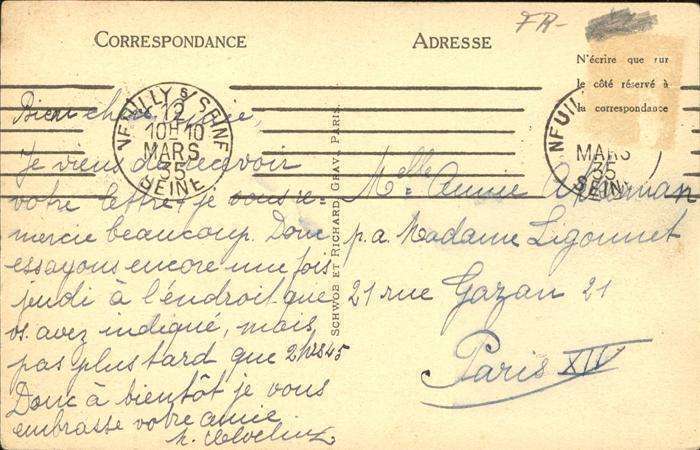 FR-
CORRESPONDANCE
ADRESSE
N'écrire que sur
le côté réservé à
la correspondance
NEUILLY S/ SEINE
12
10H10
MARS
35
SEINE
NEUIL
MARS
35
SEINE
Bien chère
Je viens de recevoir
votre lettre, je vous re-
mercie beaucoup. Donc
essayons encore une fois
jeudi à l'endroit que
vs. avez indiqué, mais,
pas plus tard que 2hrs45
Donc à bientôt je vous
embrasse votre amie
SCHWOB ET RICHARD, GRAV. PARIS.
Melle Annie
p.a. Madame Ligonnet
21 rue Gazan 21
Paris XIV